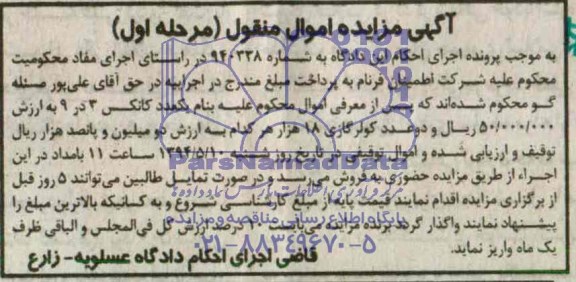 آگهی مزایده اموال منقول (مرحله اول)
به موجب پرونده اجرای احکام این دادگاه به شماره ۹۴۰۳۳۸ در راستای اجرای مفاد محکومیت
محکوم علیه شرکت اطمینان فرنام به پرداخت مبلغ مندرج در اجراییه در حق آقای علی‌پور مسئله
گو محکوم شده‌اند که پس از معرفی اموال محکوم علیه بنام یکعدد کانکس ۳ در ۹ به ارزش
۵۰/۰۰۰/۰۰۰ ریال و دوعدد کولرگازی ۱۸ هزار هر کدام به ارزش دو میلیون و پانصد هزار ریال
توقیف و ارزیابی شده و اموال توقیفی در تاریخ روز شنبه ۱۳۹۴/۵/۱۰ ساعت ۱۱ بامداد در این
اجراء از طریق مزایده حضوری به فروش می‌رسد و در صورت تمایل طالبین می‌توانند ۵ روز قبل
از برگزاری مزایده اقدام نمایند قیمت پایه از مبلغ کارشناسی شروع و به کسانیکه بالاترین مبلغ را
پیشنهاد نمایند واگذار گردد برنده مزایده می‌بایست ۱۰ درصد ارزش کل فی‌المجلس و الباقی ظرف
یک ماه واریز نماید.
قاضی اجرای احکام دادگاه عسلویه- زارع
ParsNamadData
پایگاه اطلاع رسانی مناقصه و مزایده
۰۲۱-۸۸۳۴۹۶۷۰-۵